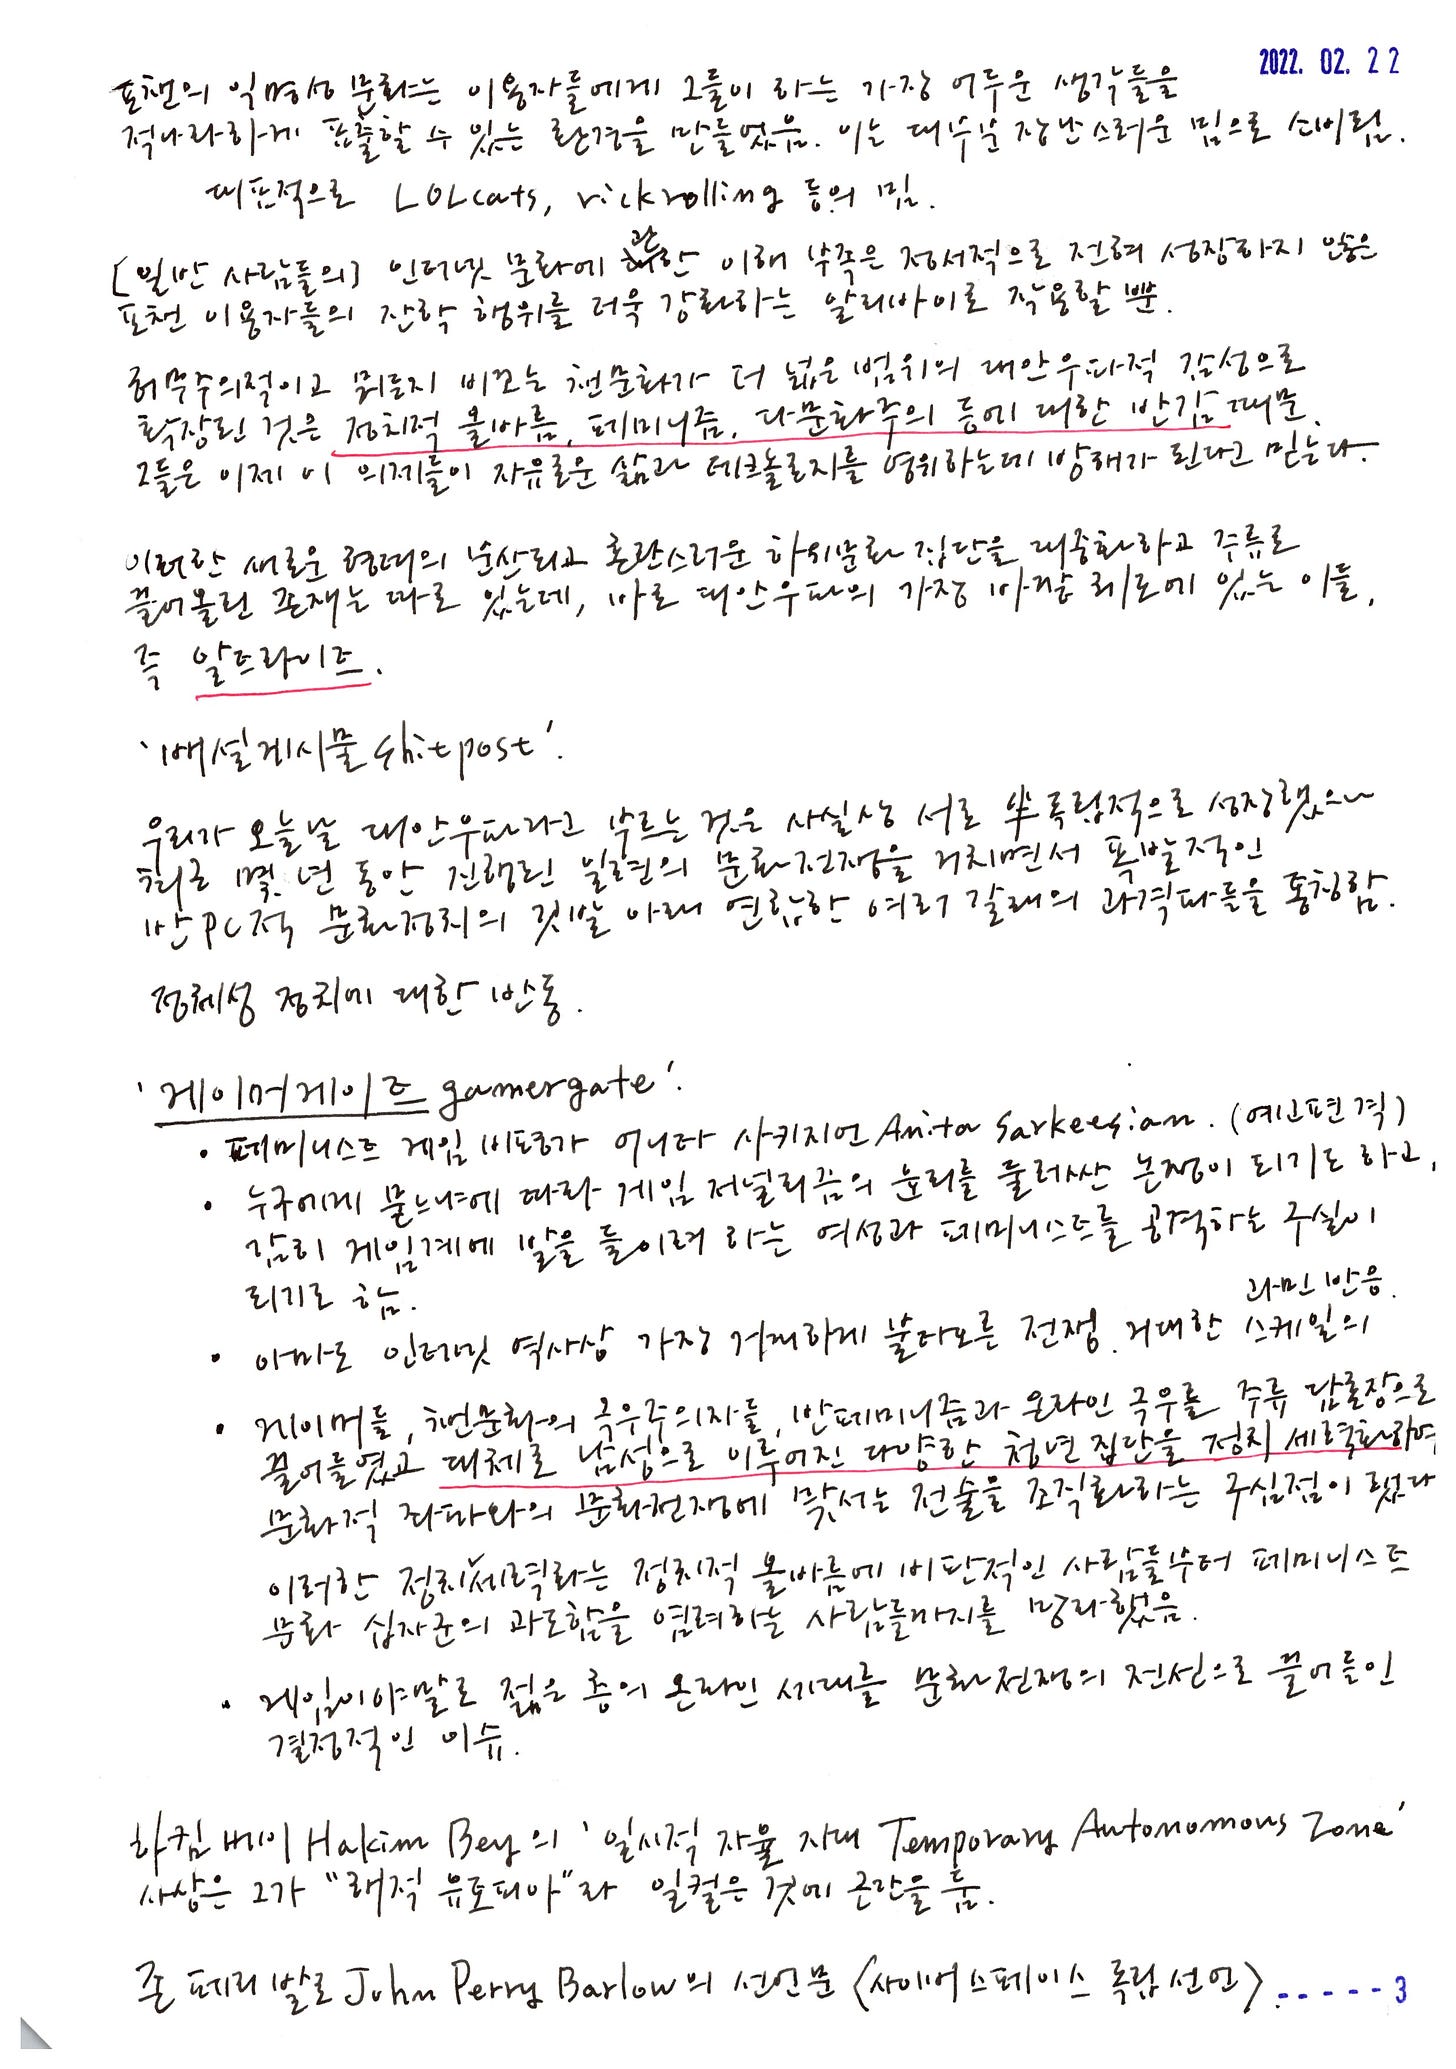 2022. 02. 22
포챈의 익명성 문화는 이용자들에게 그들이 하는 가장 어두운 생각들을
적나라하게 표출할 수 있는 환경을 만들었음. 이는 대부분 장난스러운 밈으로 쓰이됨.
대표적으로 LOLcats, rickrolling 등의 밈.
[일반 사람들의] 인터넷 문화에 관한 이해 부족은 정서적으로 전혀 성장하지 않은
포챈 이용자들의 잔학 행위를 더욱 강화하는 알리바이로 작용할 뿐.
허무주의적이고 뭐든지 비꼬는 챈문화가 더 넓은 범위의 대안우파적 감성으로
확장된 것은 정치적 올바름, 페미니즘, 다문화주의 등에 대한 반감 때문.
그들은 이제 이 의제들이 자유로운 삶과 테크놀로지를 영위하는데 방해가 된다고 믿는다.
이러한 새로운 형태의 분산되고 혼란스러운 하위문화 집단을 대중화하고 주류로
끌어올린 존재는 따로 있는데, 바로 대안우파의 가장 바깥 궤도에 있는 이들,
즉 알트라이트.
'배설게시물 shitpost'.
우리가 오늘날 대안우파라고 부르는 것은 사실상 서로 半독립적으로 성장했으나
최근 몇 년 동안 진행된 일련의 문화전쟁을 거치면서 폭발적인
반PC적 문화정치의 깃발 아래 연합한 여러 갈래의 과격파들을 통칭함.
정체성 정치에 대한 반동.
'게이머게이트 gamergate'.
• 페미니스트 게임 비평가 어니타 사키지언 Anita Sarkeesian. (예고편 격)
• 누구에게 묻느냐에 따라 게임 저널리즘의 윤리를 둘러싼 논쟁이 되기도 하고,
감히 게임계에 발을 들이려 하는 여성과 페미니스트를 공격하는 구실이
되기도 함.
과민 반응.
• 아마도 인터넷 역사상 가장 거대하게 불타오른 전쟁. 거대한 스케일의
• 게이머들, 챈문화의 극우주의자들, 반페미니즘과 온라인 극우를 주류 담론장으로
끌어들였고 대체로 남성으로 이루어진 다양한 청년 집단을 정치 세력화하여
문화적 좌파와의 문화전쟁에 맞서는 전술을 조직화하는 구심점이 됐다
이러한 정치세력화는 정치적 올바름에 비판적인 사람들부터 페미니스트
문화 십자군의 과도함을 염려하는 사람들까지를 망라했음.
• 게임이야말로 젊은 층의 온라인 세대를 문화전쟁의 전선으로 끌어들인
결정적인 이슈.
하킴 베이 Hakim Bey의 '일시적 자율 지대 Temporary Autonomous Zone'
사상은 그가 "해적 유토피아"라 일컬은 것에 근간을 둠.
존 페리 발로 John Perry Barlow의 선언문 〈사이버스페이스 독립 선언〉.-----3